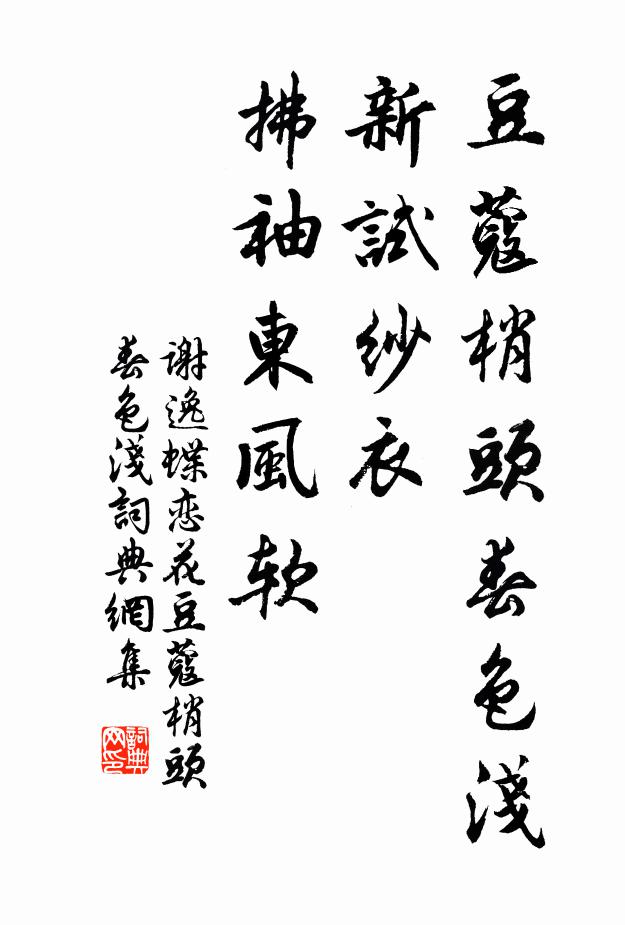 豆蔻梢頭春色淺
新試紗衣
拂袖東風软
谢逸蝶恋花豆蔻梢頭
春色淺詞典網集
詞典网印